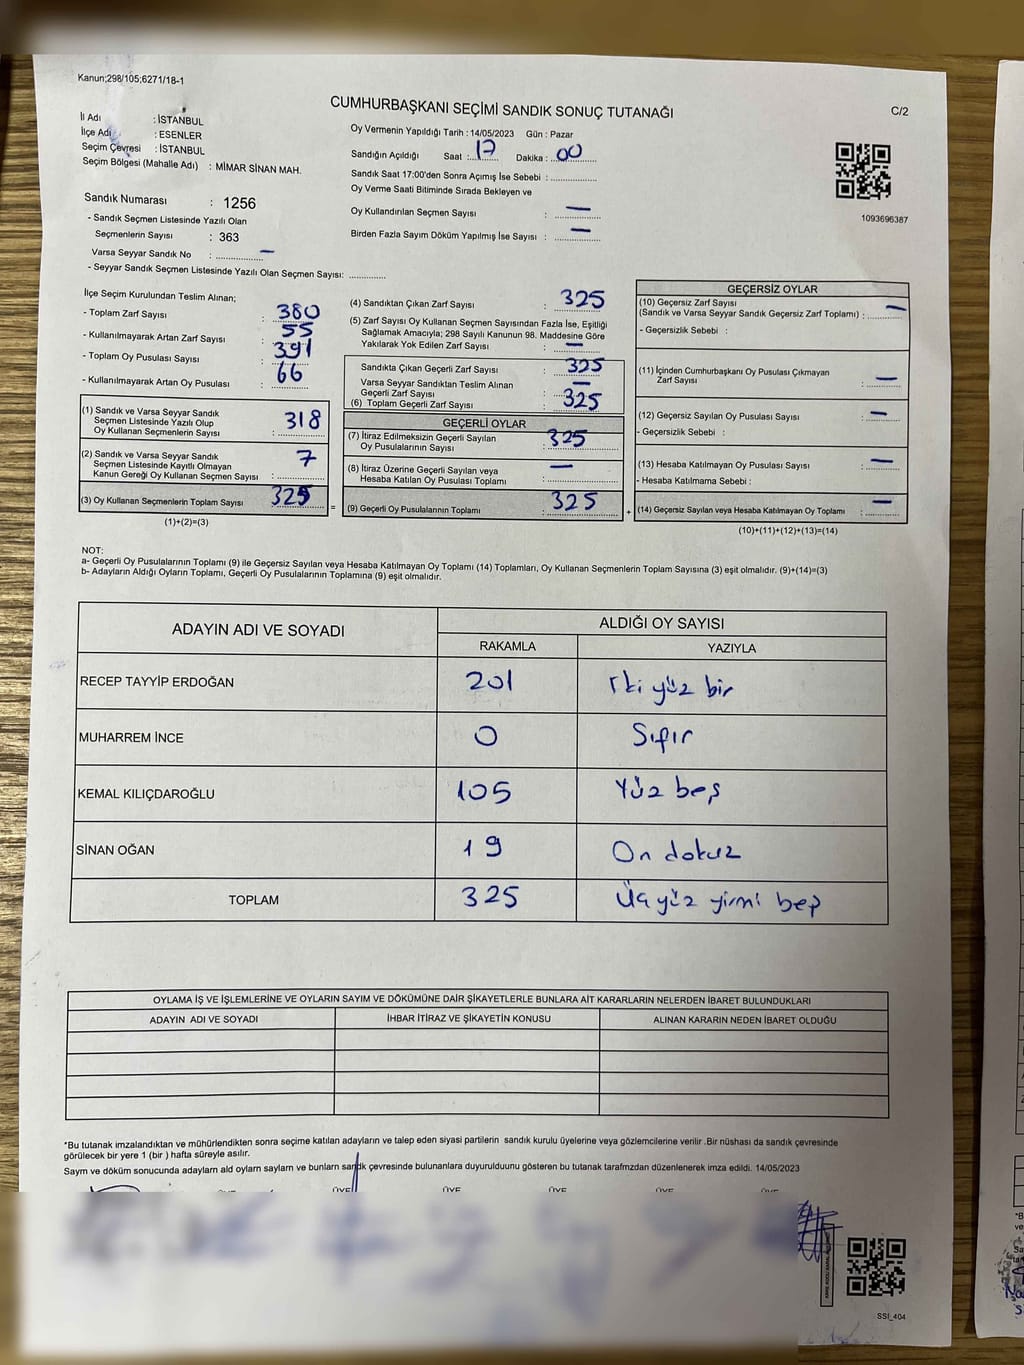 Kanun;298/105;6271/18-1
CUMHURBAŞKANI SEÇİMİ SANDIK SONUÇ TUTANAĞI
C/2
İl Adı : İSTANBUL
İlçe Adı : ESENLER
Seçim Çevresi : İSTANBUL
Seçim Bölgesi (Mahalle Adı) : MİMAR SİNAN MAH.
Oy Vermenin Yapıldığı Tarih : 14/05/2023 Gün : Pazar
Sandığın Açıldığı Saat : 17 Dakika : 00
Sandık Saat 17:00'den Sonra Açımış İse Sebebi :
Oy Verme Saati Bitiminde Sırada Bekleyen ve
Oy Kullandırılan Seçmen Sayısı : —
Birden Fazla Sayım Döküm Yapılmış İse Sayısı : —
1093696387
Sandık Numarası : 1256
- Sandık Seçmen Listesinde Yazılı Olan
Seçmenlerin Sayısı : 363
Varsa Seyyar Sandık No : —
- Seyyar Sandık Seçmen Listesinde Yazılı Olan Seçmen Sayısı:
İlçe Seçim Kurulundan Teslim Alınan;
- Toplam Zarf Sayısı : 380
- Kullanılmayarak Artan Zarf Sayısı : 55
- Toplam Oy Pusulası Sayısı : 391
- Kullanılmayarak Artan Oy Pusulası : 66
(1) Sandık ve Varsa Seyyar Sandık
Seçmen Listesinde Yazılı Olup
Oy Kullanan Seçmenlerin Sayısı : 318
(2) Sandık ve Varsa Seyyar Sandık
Seçmen Listesinde Kayıtlı Olmayan
Kanun Gereği Oy Kullanan Seçmen Sayısı : 7
(3) Oy Kullanan Seçmenlerin Toplam Sayısı 325
(1)+(2)=(3)
=
(4) Sandıktan Çıkan Zarf Sayısı : 325
(5) Zarf Sayısı Oy Kullanan Seçmen Sayısından Fazla İse, Eşitliği
Sağlamak Amacıyla; 298 Sayılı Kanunun 98. Maddesine Göre
Yakılarak Yok Edilen Zarf Sayısı : —
Sandıkta Çıkan Geçerli Zarf Sayısı : 325
Varsa Seyyar Sandıktan Teslim Alınan
Geçerli Zarf Sayısı : —
(6) Toplam Geçerli Zarf Sayısı : 325
GEÇERLİ OYLAR
(7) İtiraz Edilmeksizin Geçerli Sayılan
Oy Pusulalarının Sayısı : 325
(8) İtiraz Üzerine Geçerli Sayılan veya
Hesaba Katılan Oy Pusulası Toplamı : —
(9) Geçerli Oy Pusulalarının Toplamı : 325
+
GEÇERSİZ OYLAR
(10) Geçersiz Zarf Sayısı
(Sandık ve Varsa Seyyar Sandık Geçersiz Zarf Toplamı) : —
- Geçersizlik Sebebi :
(11) İçinden Cumhurbaşkanı Oy Pusulası Çıkmayan
Zarf Sayısı : —
(12) Geçersiz Sayılan Oy Pusulası Sayısı : —
- Geçersizlik Sebebi :
(13) Hesaba Katılmayan Oy Pusulası Sayısı : —
- Hesaba Katılmama Sebebi :
(14) Geçersiz Sayılan veya Hesaba Katılmayan Oy Toplamı : —
(10)+(11)+(12)+(13)=(14)
NOT:
a- Geçerli Oy Pusulalarının Toplamı (9) ile Geçersiz Sayılan veya Hesaba Katılmayan Oy Toplamı (14) Toplamları, Oy Kullanan Seçmenlerin Toplam Sayısına (3) eşit olmalıdır. (9)+(14)=(3)
b- Adayların Aldığı Oyların Toplamı, Geçerli Oy Pusulalarının Toplamına (9) eşit olmalıdır.
ADAYIN ADI VE SOYADI ALDIĞI OY SAYISI
RAKAMLA YAZIYLA
RECEP TAYYİP ERDOĞAN 201 İki yüz bir
MUHARREM İNCE 0 Sıfır
KEMAL KILIÇDAROĞLU 105 Yüz beş
SİNAN OĞAN 19 On dokuz
TOPLAM 325 Üç yüz yirmi beş
OYLAMA İŞ VE İŞLEMLERİNE VE OYLARIN SAYIM VE DÖKÜMÜNE DAİR ŞİKAYETLERLE BUNLARA AİT KARARLARIN NELERDEN İBARET BULUNDUKLARI
ADAYIN ADI VE SOYADI İHBAR İTİRAZ VE ŞİKAYETİN KONUSU ALINAN KARARIN NEDEN İBARET OLDUĞU
*Bu tutanak imzalandıktan ve mühürlendikten sonra seçime katılan adayların ve talep eden siyasi partilerin sandık kurulu üyelerine veya gözlemcilerine verilir .Bir nüshası da sandık çevresinde
görülecek bir yere 1 (bir ) hafta süreyle asılır.
Sayım ve döküm sonucunda adayların ald oyların sayların ve bunların sandk çevresinde bulunanlara duyurulduunu gösteren bu tutanak tarafmzdan düzenlenerek imza edildi. 14/05/2023
ÜYE ÜYE ÜYE ÜYE
SSI_404